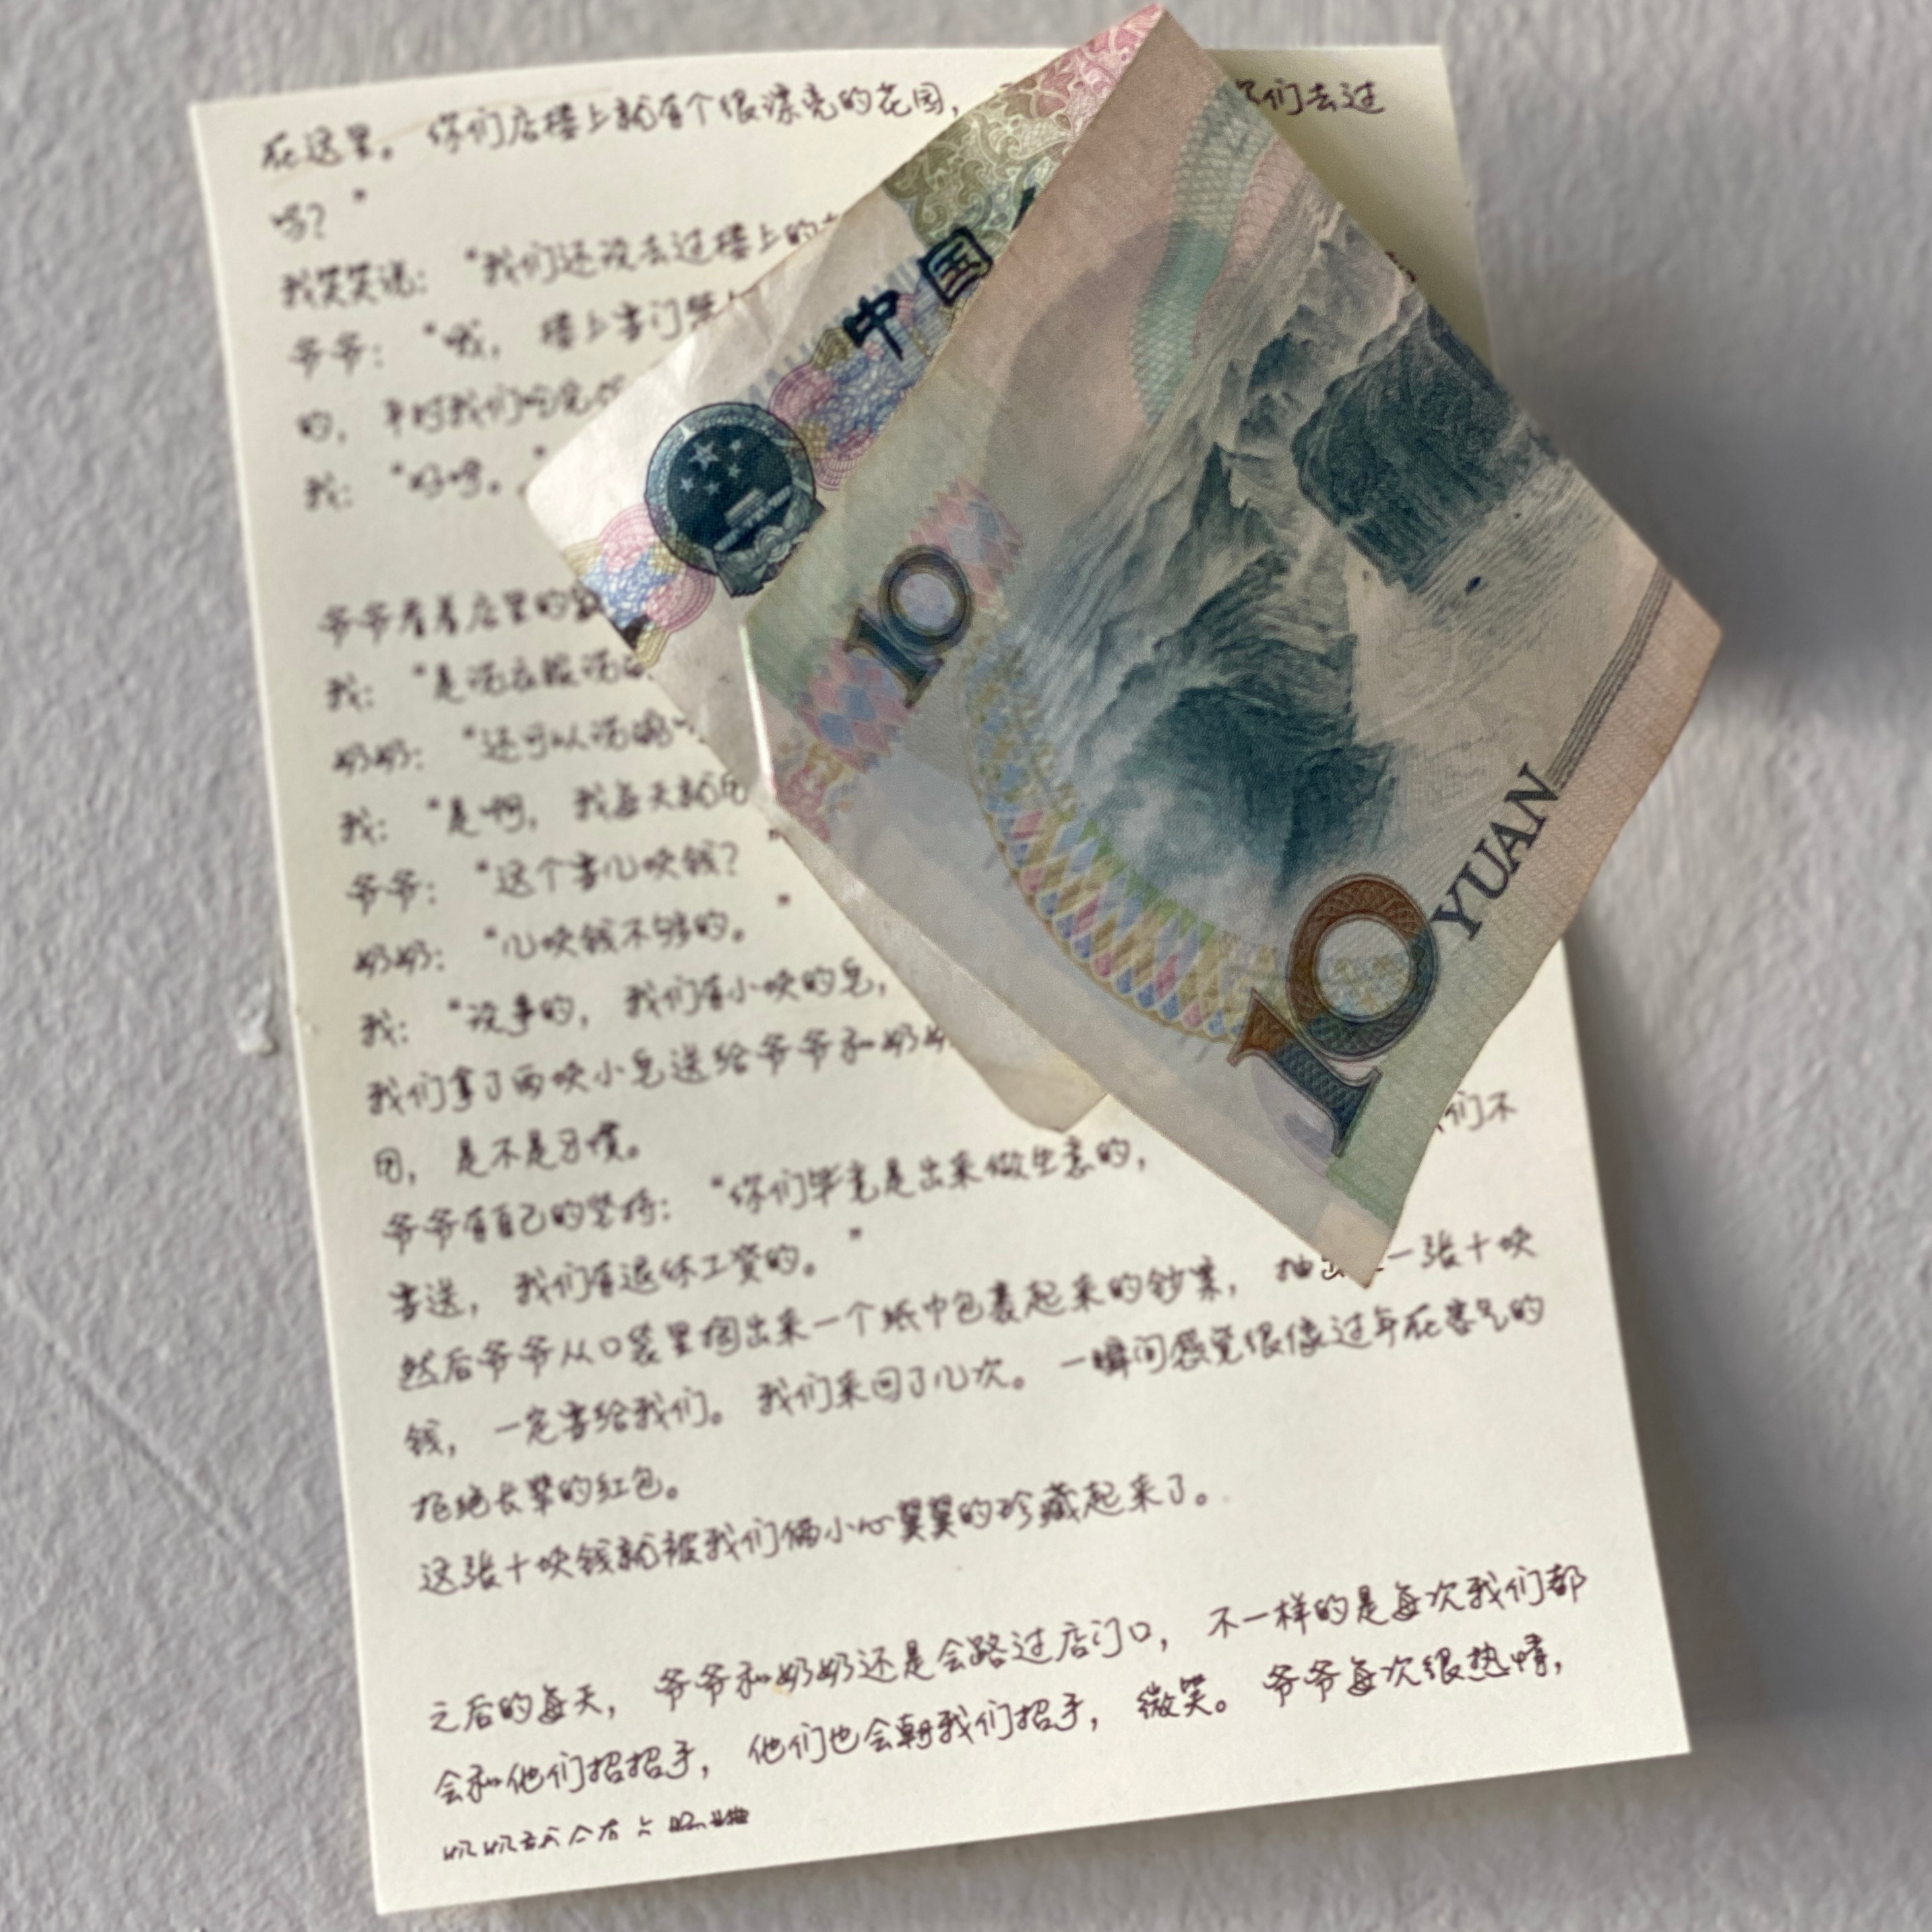 在这里。你们店楼上就有个很漂亮的花园，
你们去过
吗？”
我笑笑说：“我们还没去过楼上的
爷爷：“哦，楼上专门
的，平时我们吃完
我：“好呀。”
爷爷看着店里的
我：“是洗衣服洗
奶奶：“还可以洗碗
我：“是啊，我每天就用
爷爷：“这个害几块钱？”
奶奶：“几块钱不够的。”
我：“没事的，我们有小块的皂，
我们拿了两块小皂送给爷爷和奶奶
用，是不是习惯。
爷爷有自己的坚持：“你们毕竟是出来做生意的，
我们不
害送，我们有退休工资的。”
然后爷爷从口袋里掏出来一个纸巾包裹起来的钞票，抽
一张十块
钱，一定害给我们。我们来回了几次。一瞬间感觉很像过年在客气的
拒绝长辈的红包。
这张十块钱就被我们俩小心翼翼的珍藏起来了。
之后的每天，爷爷和奶奶还是会路过店门口，不一样的是每次我们都
会和他们招招手，他们也会朝我们招手，微笑。爷爷每次很热情，
中国
10
10 YUAN